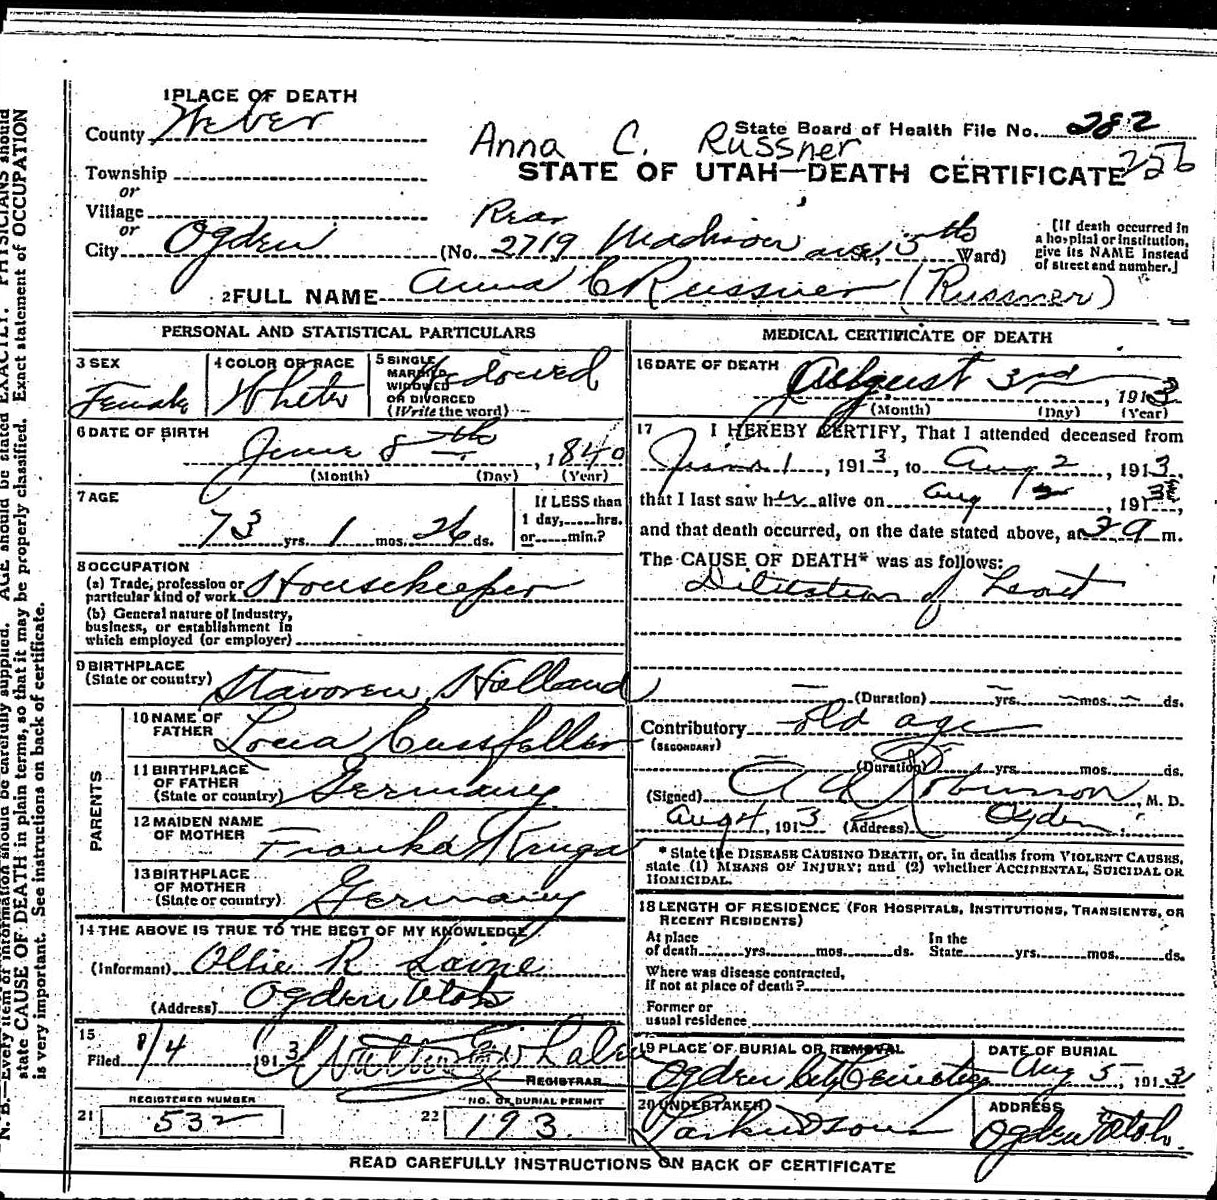 1 PLACE OF DEATH
County Weber
State Board of Health File No. 282
Anna C. Russner
256
STATE OF UTAH—DEATH CERTIFICATE
Township
or
Village
or
City Ogden (No. Rear 2719 Madison ave, 5th Ward)
[If death occurred in
a hospital or institution,
give its NAME instead
of street and number.]
2 FULL NAME Anna C Russner (Russner)
PERSONAL AND STATISTICAL PARTICULARS
3 SEX Female
4 COLOR OR RACE White
5 SINGLE
MARRIED
WIDOWED
OR DIVORCED
(Write the word)
Widowed
6 DATE OF BIRTH
June 8th, 1840
(Month) (Day) (Year)
7 AGE
73 yrs. 1 mos. 26 ds.
If LESS than
1 day,......hrs.
or......min.?
8 OCCUPATION
(a) Trade, profession or
particular kind of work Housekeeper
(b) General nature of Industry,
business, or establishment in
which employed (or employer)
9 BIRTHPLACE
(State or country) Stavoren, Holland
PARENTS
10 NAME OF
FATHER
11 BIRTHPLACE
OF FATHER
(State or country) Germany
12 MAIDEN NAME
OF MOTHER
13 BIRTHPLACE
OF MOTHER
(State or country) Germany
14 THE ABOVE IS TRUE TO THE BEST OF MY KNOWLEDGE
(Informant) Ollie R
(Address) Ogden Utah
15
Filed 8/4 1913 Walter Whalen
REGISTRAR
REGISTERED NUMBER
21 532
NO. OF BURIAL PERMIT
22 193
MEDICAL CERTIFICATE OF DEATH
16 DATE OF DEATH August 3rd, 1913
(Month) (Day) (Year)
17 I HEREBY CERTIFY, That I attended deceased from
June 1, 1913, to Aug 2, 1913,
that I last saw her alive on Aug 1913,
and that death occurred, on the date stated above, at 3 a m.
The CAUSE OF DEATH* was as follows:
Dilitation of heart
(Duration) yrs. mos. ds.
Contributory old age
(SECONDARY)
(Duration) yrs. mos. ds.
(Signed) Robinson, M. D.
Aug 4, 1913 (Address) Ogden
* State the DISEASE CAUSING DEATH, or, in deaths from VIOLENT CAUSES,
state (1) MEANS OF INJURY; and (2) whether ACCIDENTAL, SUICIDAL OR
HOMICIDAL.
18 LENGTH OF RESIDENCE (FOR HOSPITALS, INSTITUTIONS, TRANSIENTS, OR
RECENT RESIDENTS)
At place
of death......yrs......mos......ds.
In the
State......yrs......mos......ds.
Where was disease contracted,
if not at place of death?
Former or
usual residence
19 PLACE OF BURIAL OR REMOVAL
Ogden City Cemetery
DATE OF BURIAL
Aug 5, 1913
20 UNDERTAKER
Larkin & Sons
ADDRESS
Ogden Utah.
READ CAREFULLY INSTRUCTIONS ON BACK OF CERTIFICATE
N. B.—Every item of information should be carefully supplied. AGE should be stated EXACTLY. PHYSICIANS should
state CAUSE OF DEATH in plain terms, so that it may be properly classified. Exact statement of OCCUPATION
is very important. See instructions on back of certificate.